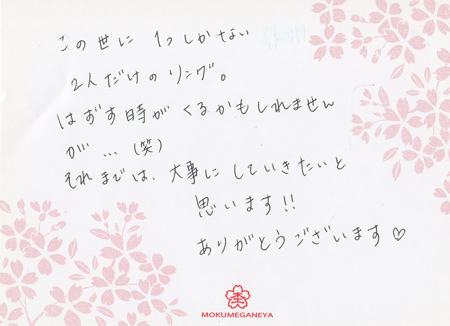 この世に 1つしかない
2人だけのリング。
はずす時が くるかもしれません
が…(笑)
それまでは、大事にしていきたいと
思います!!
ありがとうございます♡
MOKUMEGANEYA